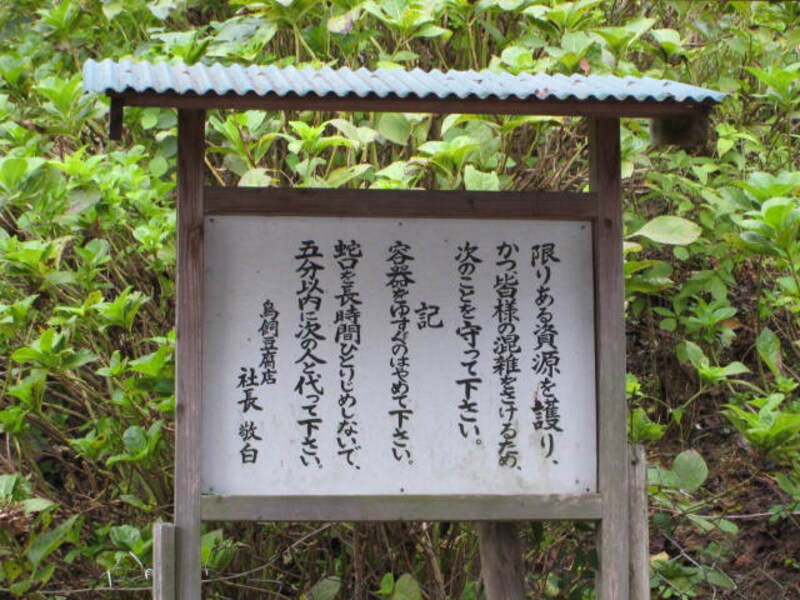 限りある資源を護り、
かつ皆様の混雑をさけるため、
次のことを守って下さい。
記
容器をゆすぐのはやめて下さい。
蛇口を長時間ひとりじめしないで、
五分以内に次の人と代って下さい。
鳥飼豆腐店
社長 敬白